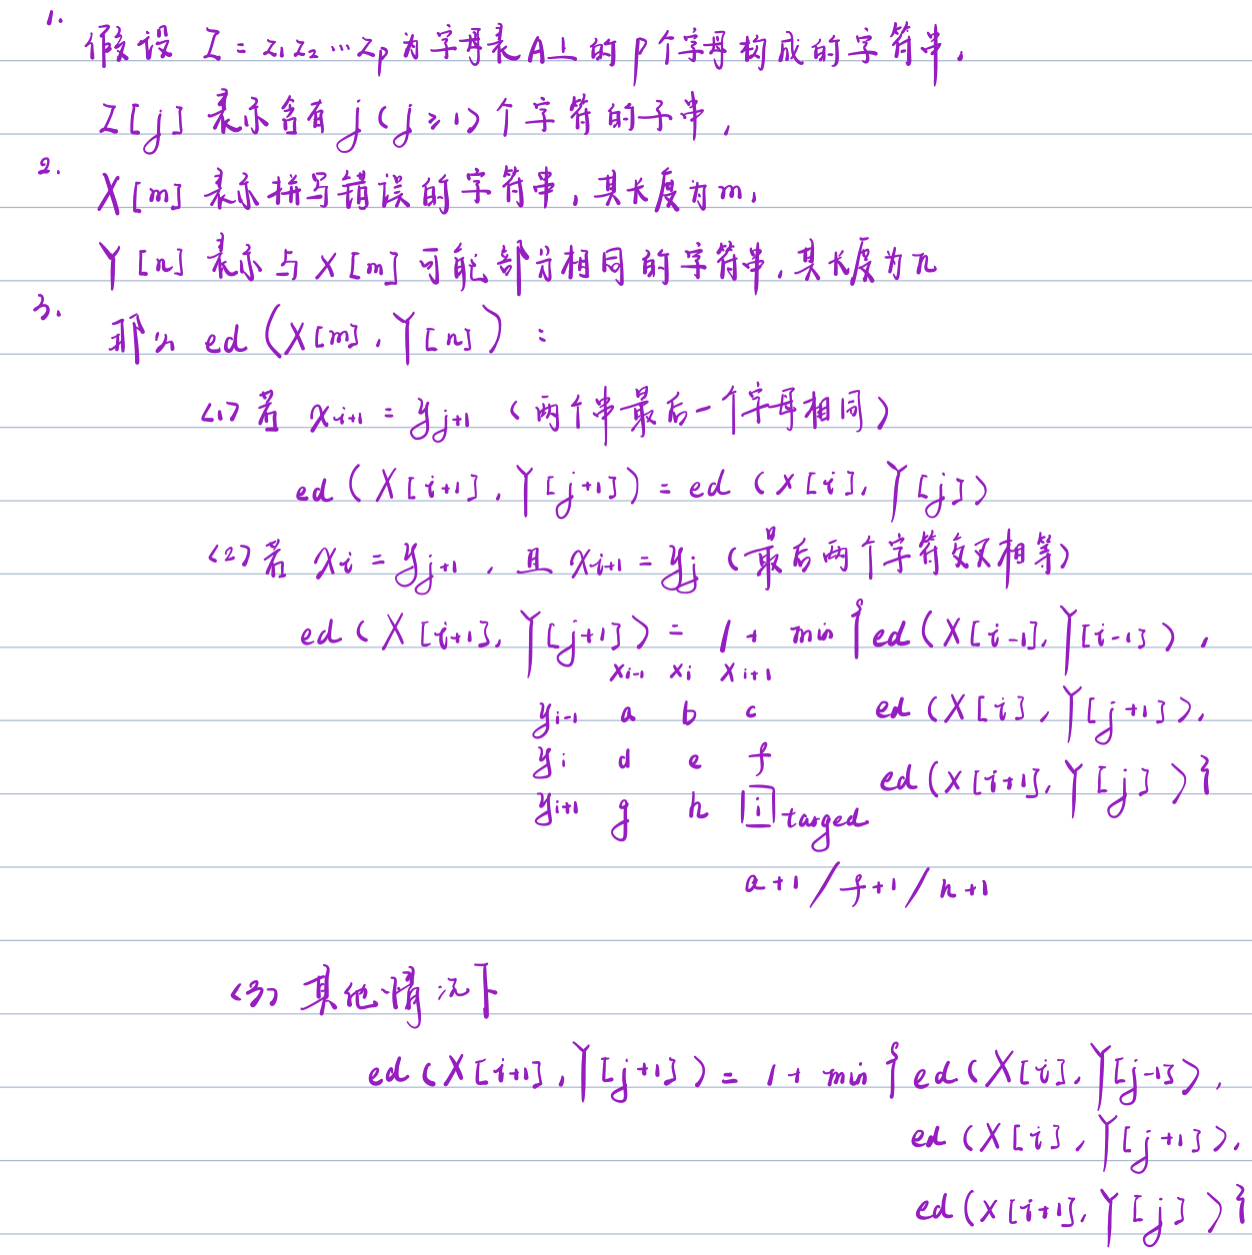 1.
假设 Z = z₁z₂…zₚ为字母表A上的p个字母构成的字符串,
Z[j] 表示含有 j(j≥1)个字符的子串,
2.
X[m] 表示拼写错误的字符串,其长度为m,
Y[n] 表示与X[m]可能部分相同的字符串,其长度为n
3.
那么 ed(X[m], Y[n]):
<1>若 xᵢ₊₁ = yⱼ₊₁ (两个串最后一个字母相同)
ed(X[i+1], Y[j+1]) = ed(X[i], Y[j])
<2>若 xᵢ = yⱼ₊₁, 且 xᵢ₊₁ = yⱼ (最后两个字符交叉相等)
ed(X[i+1], Y[j+1]) = 1+ min{ed(X[i-1], Y[i-1]),
xᵢ₋₁ xᵢ xᵢ₊₁
yᵢ₋₁ a b c ed(X[i], Y[j+1]),
yᵢ d e f
ed(X[i+1], Y[j])}
yᵢ₊₁ g h i targed
a+1/f+1/h+1
<3>其他情况下
ed(X[i+1], Y[j+1]) = 1+ min{ed(X[i], Y[j-1]),
ed(X[i], Y[j+1]),
ed(X[i+1], Y[j])}